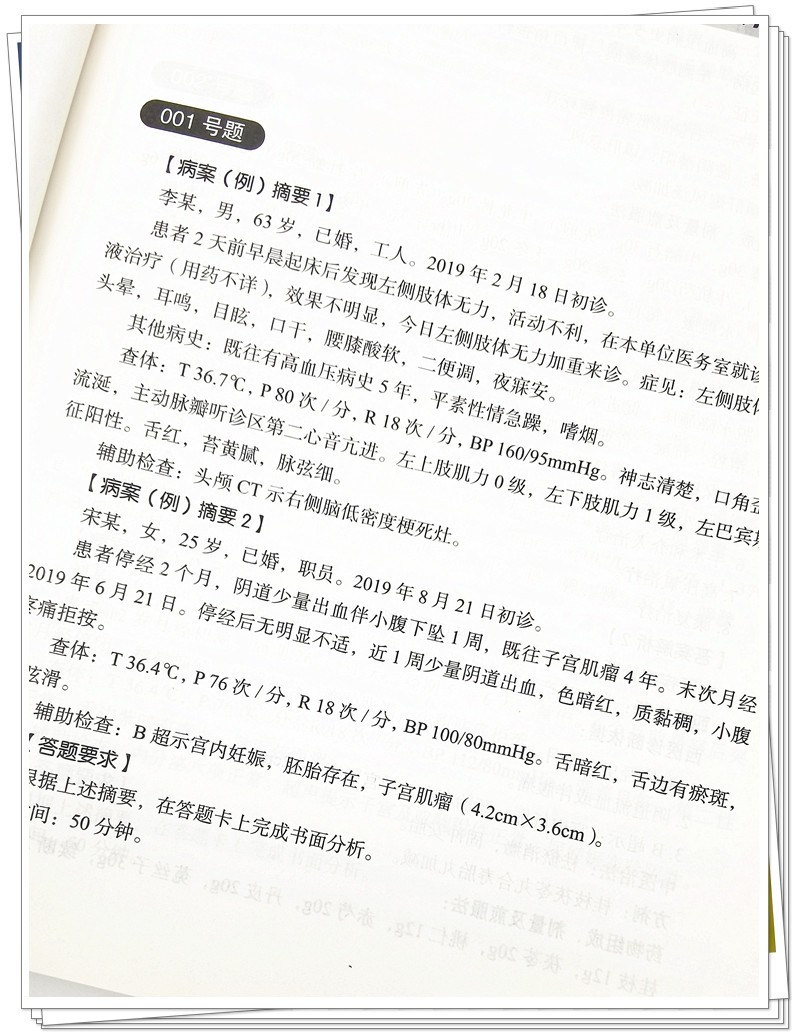 001 号题
【病案（例）摘要1】
李某，男，63 岁，已婚，工人。2019 年 2 月 18 日初诊。
患者 2 天前早晨起床后发现左侧肢体无力，活动不利，在本单位医务室就诊
液治疗（用药不详），效果不明显，今日左侧肢体无力加重来诊。症见：左侧肢体
头晕，耳鸣，目眩，口干，腰膝酸软，二便调，夜寐安。
其他病史：既往有高血压病史 5 年，平素性情急躁，嗜烟。
查体：T 36.7℃, P 80 次 / 分, R 18 次 / 分, BP 160/95mmHg。神志清楚，口角歪
流涎，主动脉瓣听诊区第二心音亢进。左上肢肌力 0 级，左下肢肌力 1 级，左巴宾斯
征阳性。舌红，苔黄腻，脉弦细。
辅助检查：头颅 CT 示右侧脑低密度梗死灶。
【病案（例）摘要2】
宋某，女，25 岁，已婚，职员。2019 年 8 月 21 日初诊。
患者停经 2 个月，阴道少量出血伴小腹下坠 1 周，既往子宫肌瘤 4 年。末次月经
2019 年 6 月 21 日。停经后无明显不适，近 1 周少量阴道出血，色暗红，质黏稠，小腹
疼痛拒按。
查体：T 36.4℃, P 76 次 / 分, R 18 次 / 分, BP 100/80mmHg。舌暗红，舌边有瘀斑，
弦滑。
辅助检查：B 超示宫内妊娠，胚胎存在，子宫肌瘤（4.2cm×3.6cm）。
【答题要求】
根据上述摘要，在答题卡上完成书面分析。
间：50 分钟。